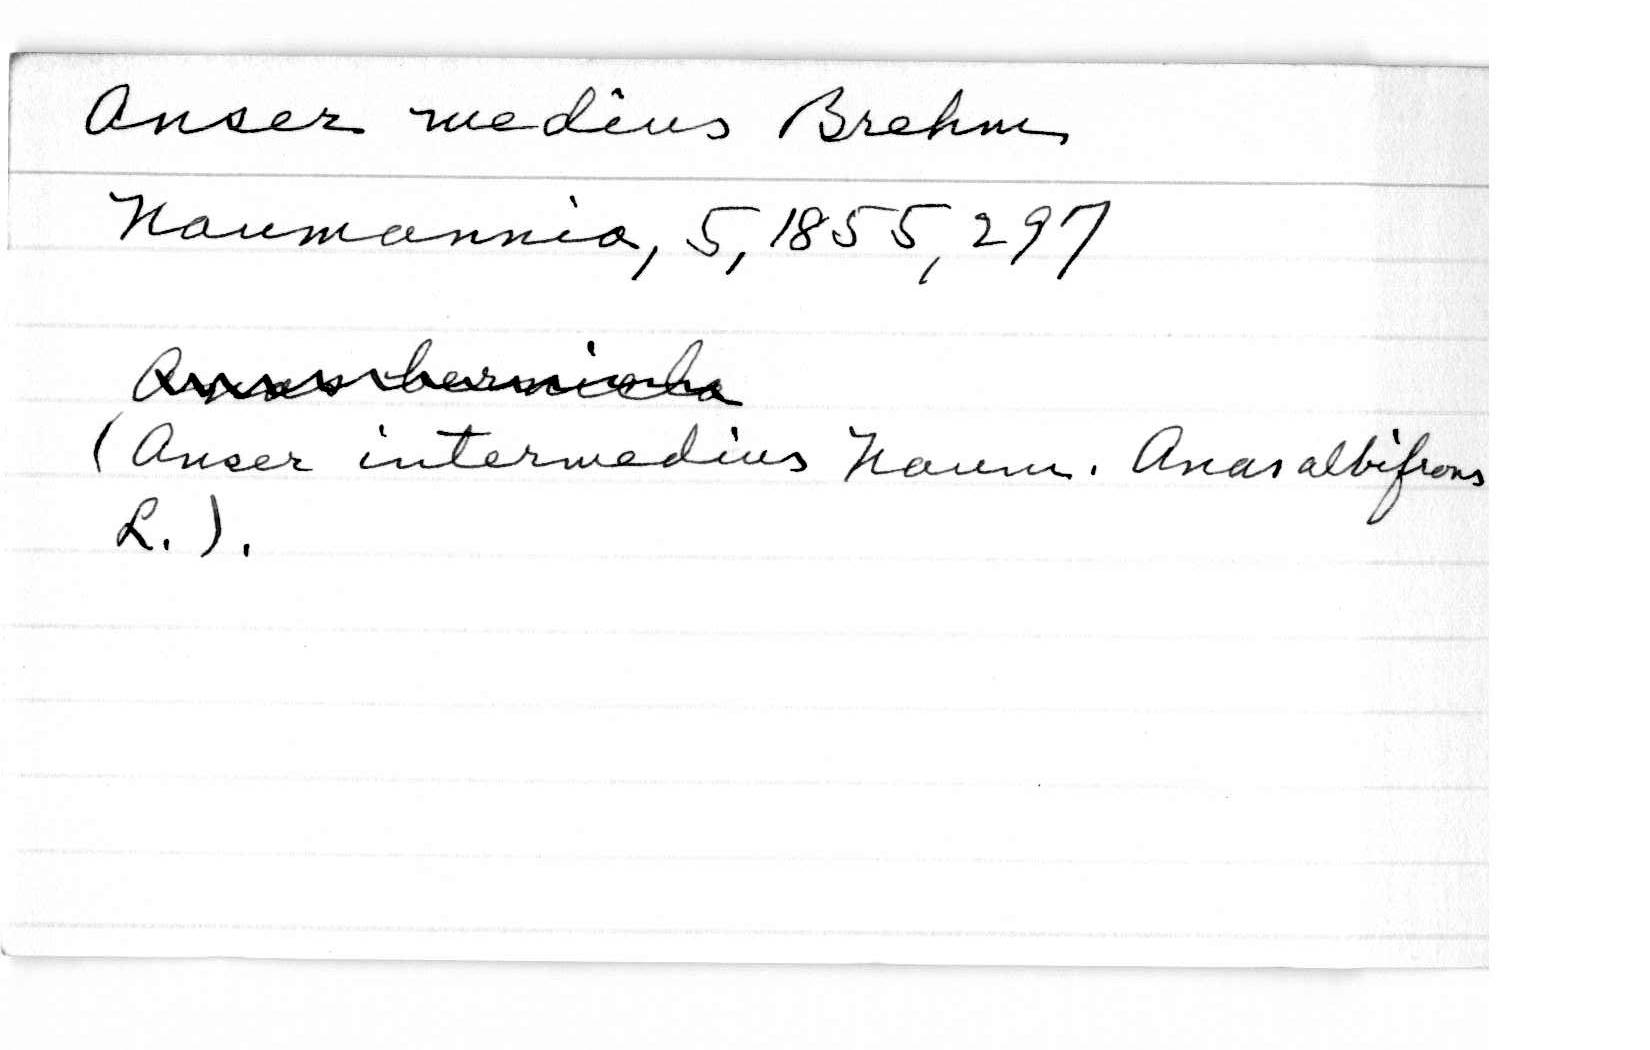 Anser medius Brehm
Naumannia, 5, 1855, 297
Anas bernicla
(Anser intermedius Naum. Anas albifrons
L.).